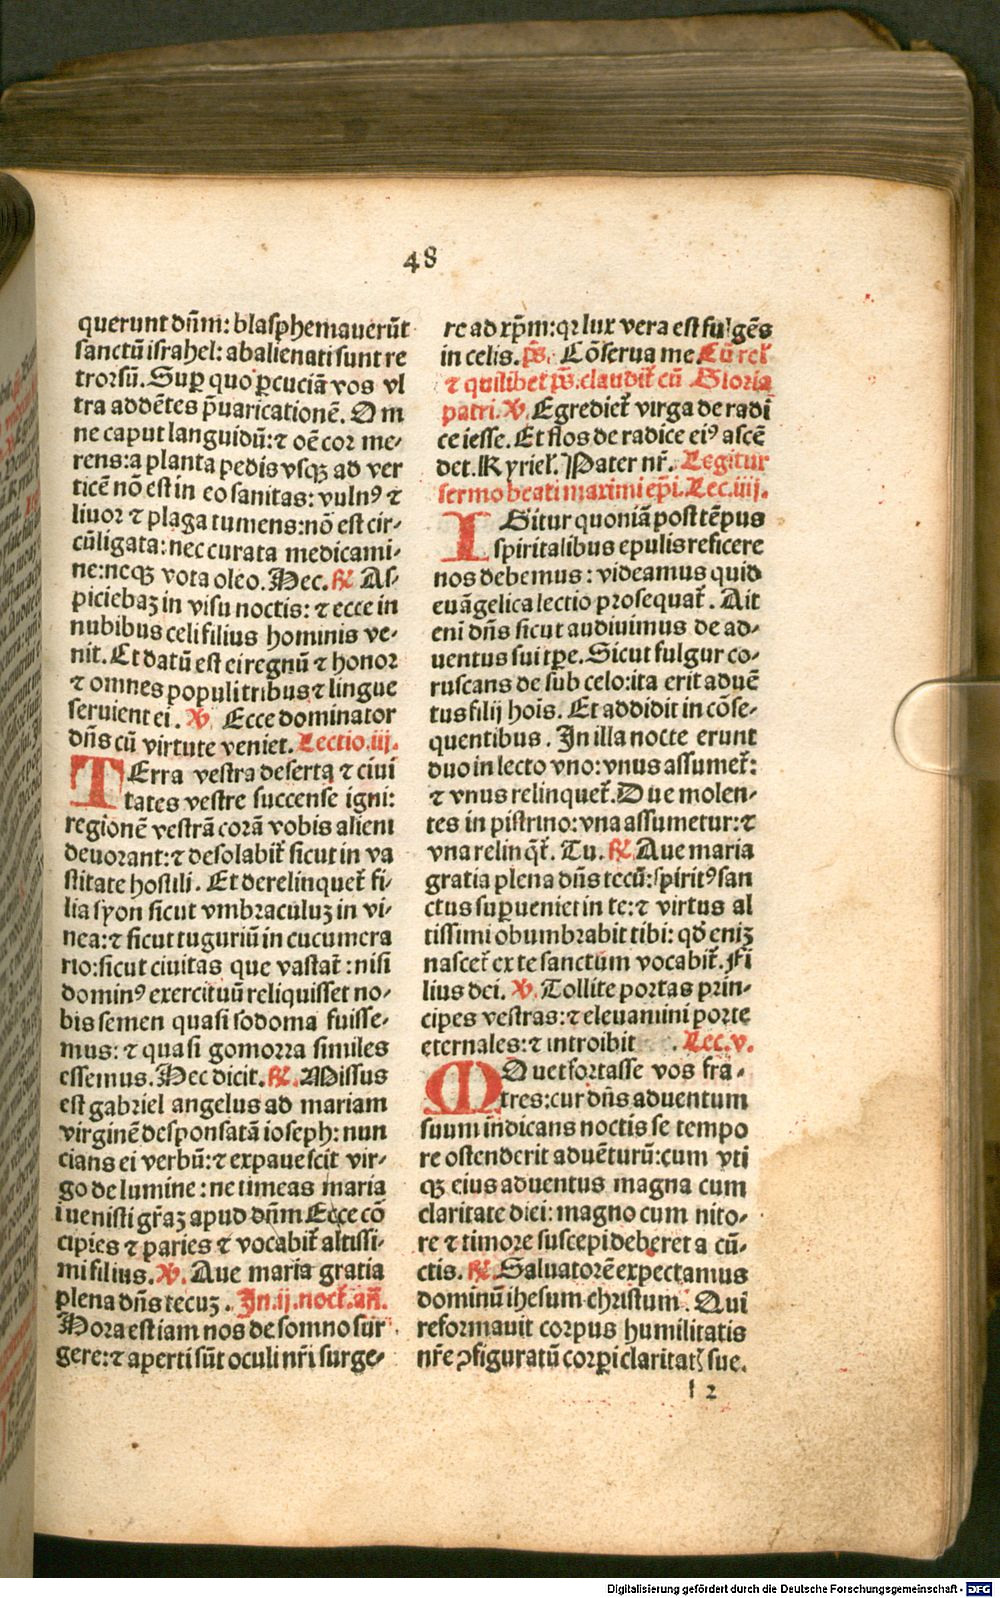 48
querunt dn̄m: blasphemauerūt
sanctū israhel: abalienati sunt re
trorsū. Suꝑ quo ꝑcuciā vos vl
tra addētes p̄uaricationē. Om
ne caput languidū: ⁊ oē cor me-
rens: a planta pedis vsqꝫ ad ver
ticē nō est in eo sanitas: vulnꝰ ⁊
liuor ⁊ plaga tumens: nō est cir-
cūligata: nec curata medicami-
ne: neqꝫ vota oleo. Hec. ℟ As-
piciebaꝫ in visu noctis: ⁊ ecce in
nubibus celi filius hominis ve-
nit. Et datū est ei regnū ⁊ honor
⁊ omnes populi tribus ⁊ lingue
seruient ei. ℣. Ecce dominator
dn̄s cū virtute veniet. Lectio.iij.
TErra vestra deserta ⁊ ciui
tates vestre succense igni:
regionē vestrā corā vobis alieni
deuorant: ⁊ desolabit᷑ sicut in va
stitate hostili. Et derelinquet᷑ fi-
lia syon sicut vmbraculuꝫ in vi-
nea: ⁊ sicut tuguriū in cucumera
rio: sicut ciuitas que vastat᷑: nisi
dominꝰ exercituū reliquisset no-
bis semen quasi sodoma fuisse-
mus: ⁊ quasi gomorra similes
essemus. Hec dicit. ℟. Missus
est gabriel angelus ad mariam
virginē desponsatā ioseph: nun
cians ei verbū: ⁊ expauescit vir-
go de lumine: ne timeas maria
iuenisti gr̄aꝫ apud dn̄m Ecce cō
cipies ⁊ paries ⁊ vocabit᷑ altissi-
mi filius. ℣. Aue maria gratia
plena dn̄s tecuꝫ. In.ij.noct᷑.an̄.
Hora est iam nos de somno sur
gere: ⁊ aperti sūt oculi nr̄i surge-
re ad xp̄m: qꝛ lux vera est fulgēs
in celis. ps̄. Cōserua me. Cū rel᷑
⁊ quilibet ps̄. claudit᷑ cū Gloria
patri. ℣. Egrediet᷑ virga de radi
ce iesse. Et flos de radice eiꝰ ascē
det. Kyriel᷑. Pater nr̄. Legitur
sermo beati maximi ep̄i. Lec.iiij.
IGitur quoniā post tēpus
spiritalibus epulis reficere
nos debemus: videamus quid
euāgelica lectio prosequat᷑. Ait
eni dn̄s sicut audiuimus de ad-
uentus sui tꝑe. Sicut fulgur co-
ruscans de sub celo: ita erit aduē
tus filij hoīs. Et addidit in cōse-
quentibus. In illa nocte erunt
duo in lecto vno: vnus assumet᷑:
⁊ vnus relinquet᷑. Due molen-
tes in pistrino: vna assumetur: ⁊
vna relinq̄t᷑. Tu. ℟. Aue maria
gratia plena dn̄s tecū: spiritꝰ san
ctus suꝑueniet in te: ⁊ virtus al
tissimi obumbrabit tibi: qd̄ eniꝫ
nascet᷑ ex te sanctum vocabit᷑. Fi
lius dei. ℣. Tollite portas prin-
cipes vestras: ⁊ eleuamini porte
eternales: ⁊ introibit . Lec.v.
MOuet fortasse vos fra-
tres: cur dn̄s aduentum
suum īndicans noctis se tempo
re ostenderit aduēturū: cum vti
qꝫ eius aduentus magna cum
claritate diei: magno cum nito-
re ⁊ timore suscepi deberet a cū-
ctis. ℟. Saluatorē expectamus
dominū ihesum christum. Qui
reformauit corpus humilitatis
nr̄e ꝯfiguratū corꝑi claritatꝭ sue.
f 2
Digitalisierung gefördert durch die Deutsche Forschungsgemeinschaft - DFG